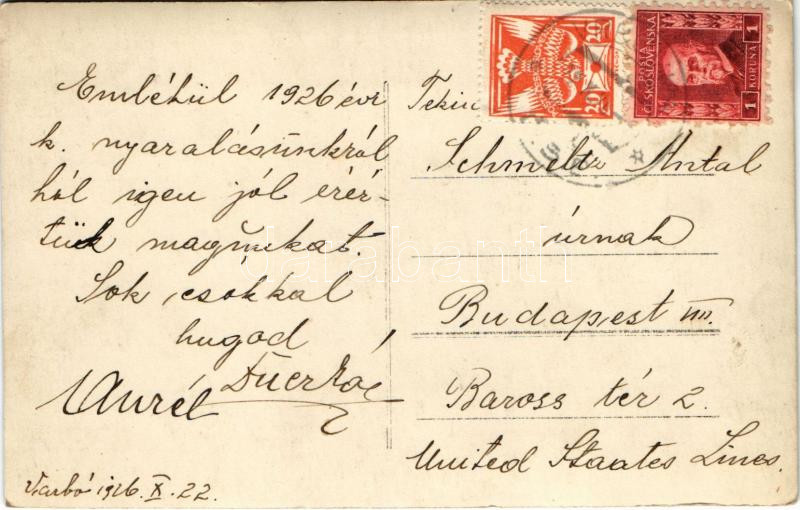 Emlékül 1926 évi
k. nyaralásunkról
hól igen jól érér-
tük magunkat.
Sok csókkal
hugod
Aurél
Varbó 1926. X. 22.
20 20
POSTA
ČESKOSLOVENSKÁ
1 KORUNA 1
Schmeltz Antal
úrnak
Budapest VIII.
Baross tér 2.
United Staates Lines.
darabanth